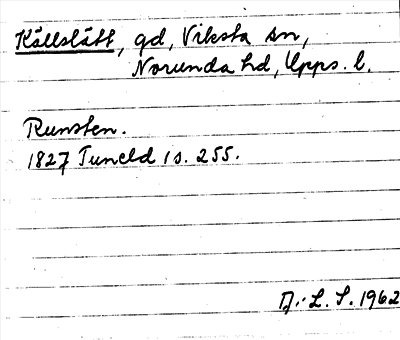 Källslätt, gd, Viksta sn,
Norunda hd, Upps. l.
Runsten.
1827 Tuneld 1 s. 255.
D:L. S. 1962